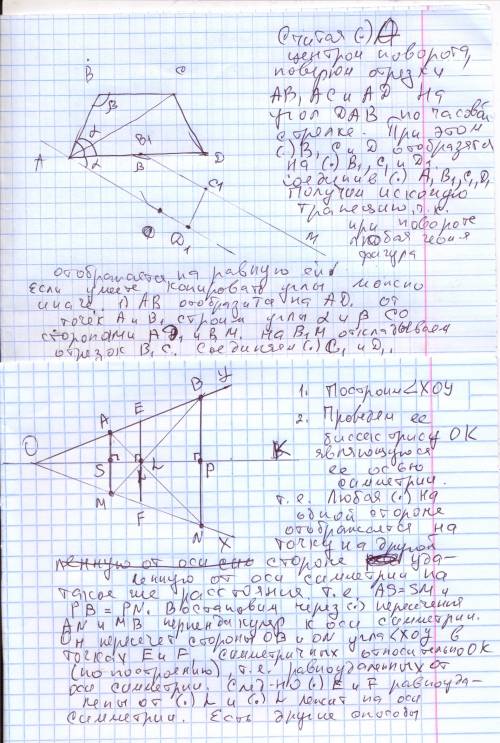 Считая (·) А
центром поворота,
повернём отрезки
АВ, АС и AD на
угол DAB по часовой
стрелке. При этом
(·) В, С и D отобразятся
на (·) B₁, C₁ и D₁.
Соединив (·) А, B₁, C₁, D₁
получим искомую
трапецию, т.к.
при повороте
любая
фигура
B
C
β
α
α
A
B₁
β
D
C₁
D₁
M
отображается на равную ей.
Если умеете копировать углы можно
иначе. 1) АВ отобразить на AD. От
точек А и B₁ строим углы α и β со
сторонами AD₁ и BM. На B₁M откладываем
отрезок B₁C. Соединяем (·) C₁ и D₁.
1. Построим ∠XOY
2. Проведём ее
биссектрису OK
являющуюся
ее осью
симметрии.
т.е. Любая (·) на
одной стороне
отображается на
точку на другой
B
Y
E
A
O
S
L
P
K
M
F
N
X
ленную от оси сим стороне уда-
ленную от оси симметрии на
такое же расстояние, т.е. AS=SM и
PB=PN. Восстановим через (·) пересечения
AN и MB перпендикуляр к оси симметрии.
Он пересечёт стороны OB и ON угла ∠XOY в
точках E и F симметричных относительно OK
(по построению), т.е. равноудаленных от
оси симметрии. След-но (·) E и F равноуда-
лены от (·) L и (·) L лежит на оси
симметрии. Есть другие способы